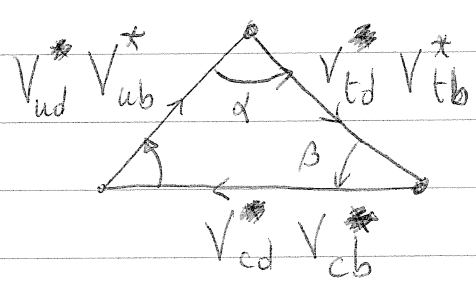 V_ud V_ub^* V_td V_tb^*
α
β
V_cd V_cb^*